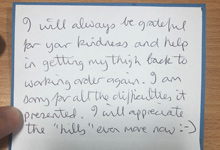 I will always be grateful
for your kindness and help
in getting my thigh back to
working order again. I am
sorry for all the difficulties it
presented. I will appreciate
the "hills" even more now :-)